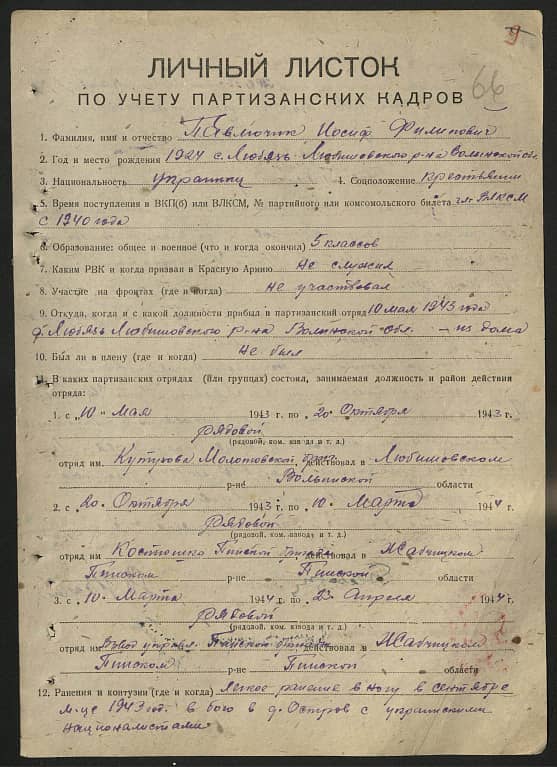 9
66
ЛИЧНЫЙ ЛИСТОК
ПО УЧЕТУ ПАРТИЗАНСКИХ КАДРОВ
1. Фамилия, имя и отчество Павлючик Иосиф Филипович
2. Год и место рождения 1924 с. Любязь Любишовского р-на Волынской обл.
3. Национальность украинец 4. Соцположение крестьянин
5. Время поступления в ВКП(б) или ВЛКСМ, № партийного или комсомольского билета чл. ВЛКСМ
с 1940 года
6. Образование: общее и военное (что и когда окончил) 5 классов
7. Каким РВК и когда призван в Красную Армию Не служил
8. Участие на фронтах (где и когда) не участвовал
9. Откуда, когда и с какой должности прибыл в партизанский отряд 10 мая 1943 года
д. Любязь Любишовского р-на Волынской обл. — из дома
10. Был ли в плену (где и когда) Не был
11. В каких партизанских отрядах (или группах) состоял, занимаемая должность и район действия
отряда:
1. с „10" Мая 1943 г. по 20 Октября 1943 г.
рядовой
(рядовой, ком. взвода и т. д.)
отряд им. Кутузова Молотовской действовал в Любишовском
р-не Волынской области
2. с 20 Октября 1943 г. по 10 Марта 1944 г.
рядовой
(рядовой, ком. взвода и т. д.)
отряд им. Костюшко Пинской бригады действовал в Жабчицком
Пинском р-не Пинской области
3. с 10 Марта 1944 г. по 23 Апреля 1944 г.
рядовой
(рядовой, ком. взвода и т. д.)
отряд им. Взвод управл. Пинской бригады действовал в Жабчицком
Пинском р-не Пинской области
12. Ранения и контузии (где и когда) легкое ранение в ногу в сентябре
м-це 1943 год. в бою в д. Остров с украинскими
националистами